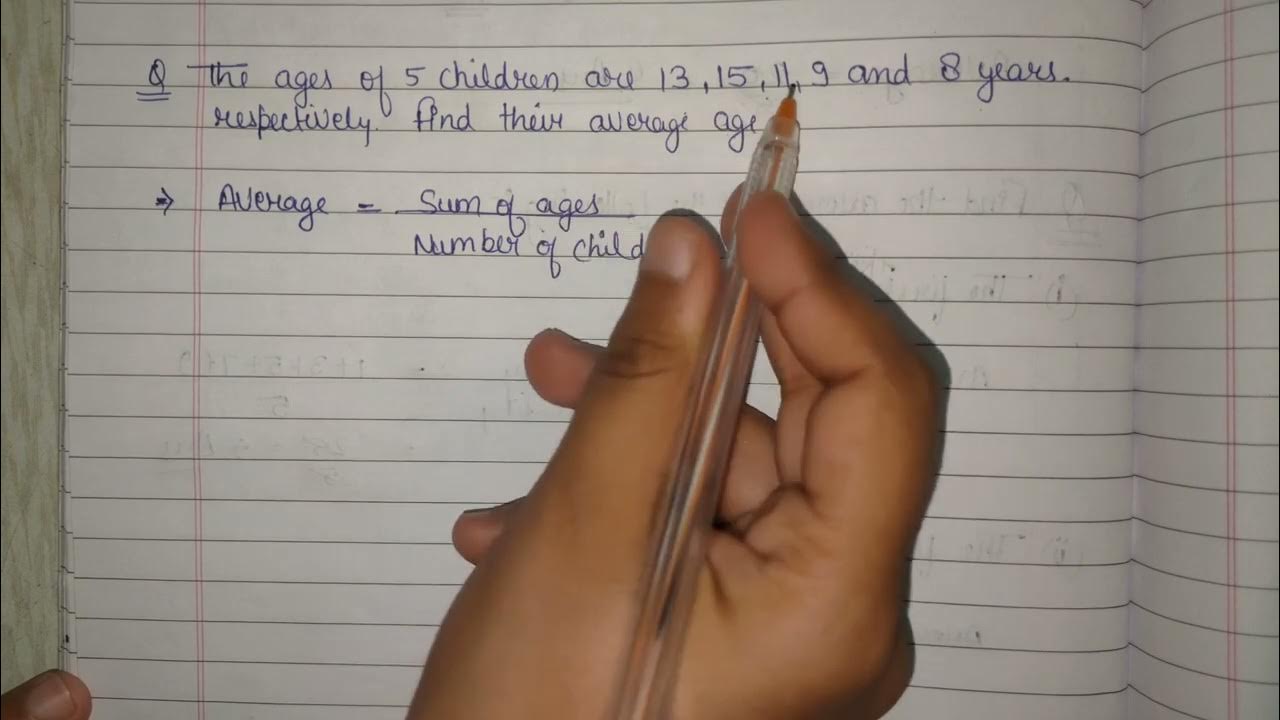 Q The ages of 5 children are 13, 15, 11, 9 and 8 years.
respectively. Find their average age
⇒ Average = Sum of ages
Number of child